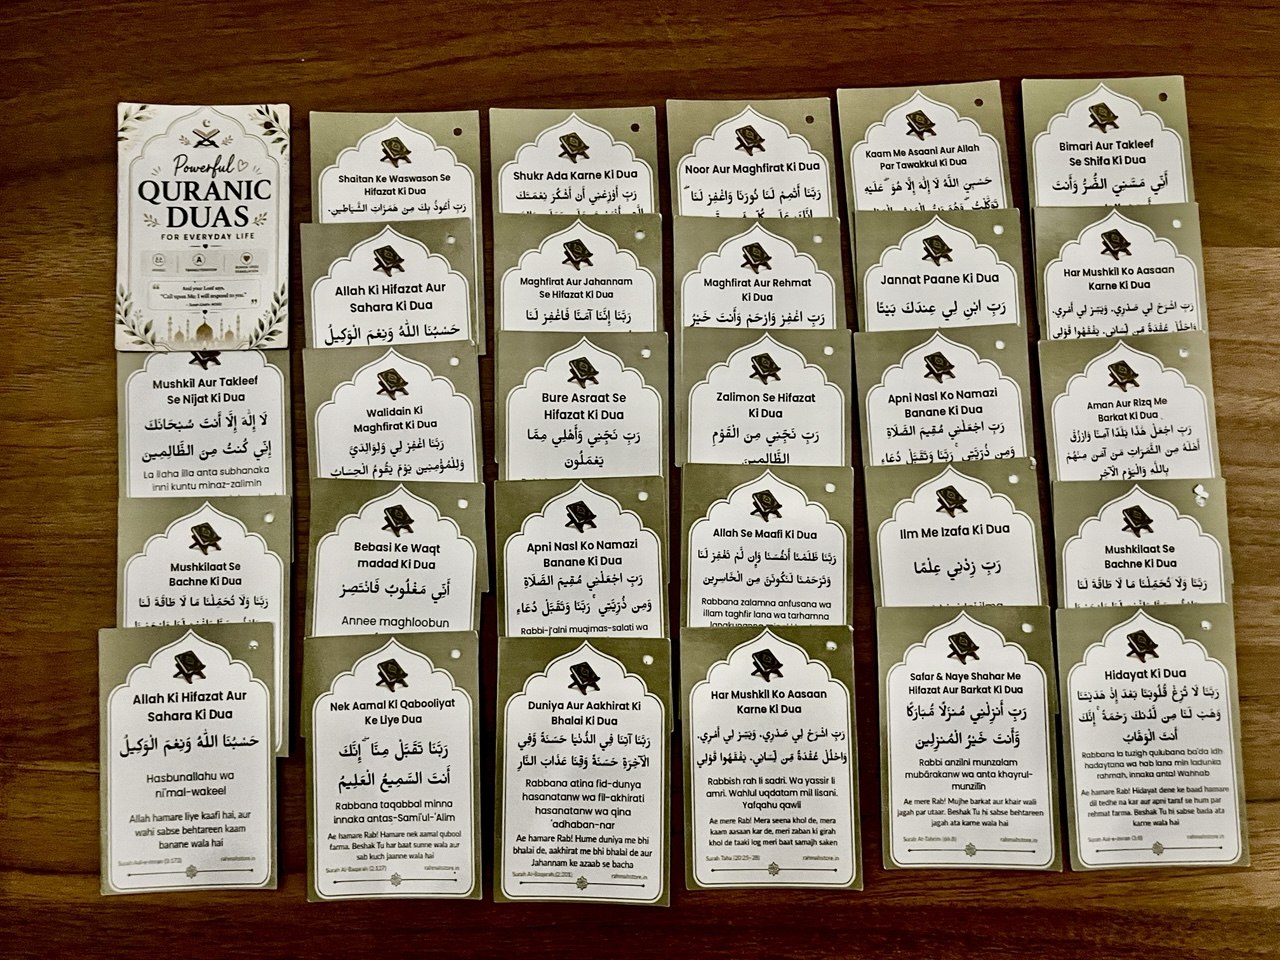 Powerful
QURANIC
DUAS
FOR EVERYDAY LIFE
And your Lord says,
"Call upon Me; I will respond to you."
Shaitan Ke Waswason Se
Hifazat Ki Dua
رَبِّ أَعُوذُ بِكَ مِن هَمَزَاتِ الشَّيَاطِينِ.
Shukr Ada Karne Ki Dua
رَبِّ أَوْزِعْنِي أَن أَشْكُرَ نِعْمَتَكَ
Noor Aur Maghfirat Ki Dua
رَبَّنَا أَتْمِمْ لَنَا نُورَنَا وَاغْفِرْ لَنَا
Kaam Me Asaani Aur Allah
Par Tawakkul Ki Dua
حَسْبِيَ اللّٰهُ لَا إِلٰهَ إِلَّا هُوَ ۖ عَلَيْهِ
Bimari Aur Takleef
Se Shifa Ki Dua
أَنِّي مَسَّنِيَ الضُّرُّ وَأَنتَ
Allah Ki Hifazat Aur
Sahara Ki Dua
حَسْبُنَا اللّٰهُ وَنِعْمَ الْوَكِيلُ
Maghfirat Aur Jahannam
Se Hifazat Ki Dua
رَبَّنَا إِنَّنَا آمَنَّا فَاغْفِرْ لَنَا
Maghfirat Aur Rehmat
Ki Dua
رَبِّ اغْفِرْ وَارْحَمْ وَأَنتَ خَيْرُ
Jannat Paane Ki Dua
رَبِّ ابْنِ لِي عِندَكَ بَيْتًا
Har Mushkil Ko Aasaan
Karne Ki Dua
رَبِّ اشْرَحْ لِي صَدْرِي. وَيَسِّرْ لِي أَمْرِي.
وَاحْلُلْ عُقْدَةً مِّن لِّسَانِي. يَفْقَهُوا قَوْلِي
Mushkil Aur Takleef
Se Nijat Ki Dua
لَا إِلٰهَ إِلَّا أَنتَ سُبْحَانَكَ
إِنِّي كُنتُ مِنَ الظَّالِمِينَ
La ilaha illa anta subhanaka
inni kuntu minaz-zalimin
Walidain Ki
Maghfirat Ki Dua
رَبَّنَا اغْفِرْ لِي وَلِوَالِدَيَّ
وَلِلْمُؤْمِنِينَ يَوْمَ يَقُومُ الْحِسَابُ
Bure Asraat Se
Hifazat Ki Dua
رَبِّ نَجِّنِي وَأَهْلِي مِمَّا
يَعْمَلُونَ
Zalimon Se Hifazat
Ki Dua
رَبِّ نَجِّنِي مِنَ الْقَوْمِ
الظَّالِمِينَ
Apni Nasl Ko Namazi
Banane Ki Dua
رَبِّ اجْعَلْنِي مُقِيمَ الصَّلَاةِ
وَمِن ذُرِّيَّتِي ۚ رَبَّنَا وَتَقَبَّلْ دُعَاءِ
Aman Aur Rizq Me
Barkat Ki Dua
رَبِّ اجْعَلْ هٰذَا بَلَدًا آمِنًا وَارْزُقْ
أَهْلَهُ مِنَ الثَّمَرَاتِ مَنْ آمَنَ مِنْهُم
بِاللّٰهِ وَالْيَوْمِ الْآخِرِ
Mushkilaat Se
Bachne Ki Dua
رَبَّنَا وَلَا تُحَمِّلْنَا مَا لَا طَاقَةَ لَنَا
Bebasi Ke Waqt
madad Ki Dua
أَنِّي مَغْلُوبٌ فَانتَصِرْ
Annee maghloobun
Apni Nasl Ko Namazi
Banane Ki Dua
رَبِّ اجْعَلْنِي مُقِيمَ الصَّلَاةِ
وَمِن ذُرِّيَّتِي ۚ رَبَّنَا وَتَقَبَّلْ دُعَاءِ
Rabbi-j'alni muqimas-salati wa
Allah Se Maafi Ki Dua
رَبَّنَا ظَلَمْنَا أَنفُسَنَا وَإِن لَّمْ تَغْفِرْ لَنَا
وَتَرْحَمْنَا لَنَكُونَنَّ مِنَ الْخَاسِرِينَ
Rabbana zalamna anfusana wa
illam taghfir lana wa tarhamna
Ilm Me Izafa Ki Dua
رَبِّ زِدْنِي عِلْمًا
Mushkilaat Se
Bachne Ki Dua
رَبَّنَا وَلَا تُحَمِّلْنَا مَا لَا طَاقَةَ لَنَا
Allah Ki Hifazat Aur
Sahara Ki Dua
حَسْبُنَا اللّٰهُ وَنِعْمَ الْوَكِيلُ
Hasbunallahu wa
ni'mal-wakeel
Allah hamare liye kaafi hai, aur
wahi sabse behtareen kaam
banane wala hai
Surah Aal-e-Imran (3:173) rahmahstore.in
Nek Aamal Ki Qabooliyat
Ke Liye Dua
رَبَّنَا تَقَبَّلْ مِنَّا ۖ إِنَّكَ
أَنتَ السَّمِيعُ الْعَلِيمُ
Rabbana taqabbal minna
innaka antas-Sami'ul-'Alim
Ae hamare Rab! Hamare nek aamal qubool
farma. Beshak Tu har baat sunne wala aur
sab kuch jaanne wala hai
Surah Al-Baqarah (2:127) rahmahstore.in
Duniya Aur Aakhirat Ki
Bhalai Ki Dua
رَبَّنَا آتِنَا فِي الدُّنْيَا حَسَنَةً وَّفِي
الْآخِرَةِ حَسَنَةً وَّقِنَا عَذَابَ النَّارِ
Rabbana atina fid-dunya
hasanatanw wa fil-akhirati
hasanatanw wa qina
'adhaban-nar
Ae hamare Rab! Hume duniya me bhi
bhalai de, aakhirat me bhi bhalai de aur
Jahannam ke azaab se bacha
Surah Al-Baqarah (2:201) rahmahstore.in
Har Mushkil Ko Aasaan
Karne Ki Dua
رَبِّ اشْرَحْ لِي صَدْرِي. وَيَسِّرْ لِي أَمْرِي.
وَاحْلُلْ عُقْدَةً مِّن لِّسَانِي. يَفْقَهُوا قَوْلِي
Rabbish rah li sadri. Wa yassir li
amri. Wahlul uqdatam mil lisani.
Yafqahu qawli
Ae mere Rab! Mera seena khol de, mera
kaam aasaan kar de, meri zaban ki girah
khol de taaki log meri baat samajh saken
Surah Taha (20:25-28) rahmahstore.in
Safar & Naye Shahar Me
Hifazat Aur Barkat Ki Dua
رَبِّ أَنزِلْنِي مُنزَلًا مُّبَارَكًا
وَّأَنتَ خَيْرُ الْمُنزِلِينَ
Rabbi anzilni munzalam
mubārakanw wa anta khayrul-
munzilin
Ae mere Rab! Mujhe barkat aur khair wali
jagah par utaar. Beshak Tu hi sabse behtareen
jagah ata karne wala hai
rahmahstore.in
Hidayat Ki Dua
رَبَّنَا لَا تُزِغْ قُلُوبَنَا بَعْدَ إِذْ هَدَيْتَنَا
وَهَبْ لَنَا مِن لَّدُنكَ رَحْمَةً ۚ إِنَّكَ
أَنتَ الْوَهَّابُ
Rabbana la tuzigh qulubana ba'da idh
hadaytana wa hab lana min ladunka
rahmah, innaka antal Wahhab
Ae hamare Rab! Hidayat dene ke baad hamare
dil tedhe na kar aur apni taraf se hum par
rehmat farma. Beshak Tu hi sabse bada ata
karne wala hai
Surah Aal-e-Imran (3:8) rahmahstore.in